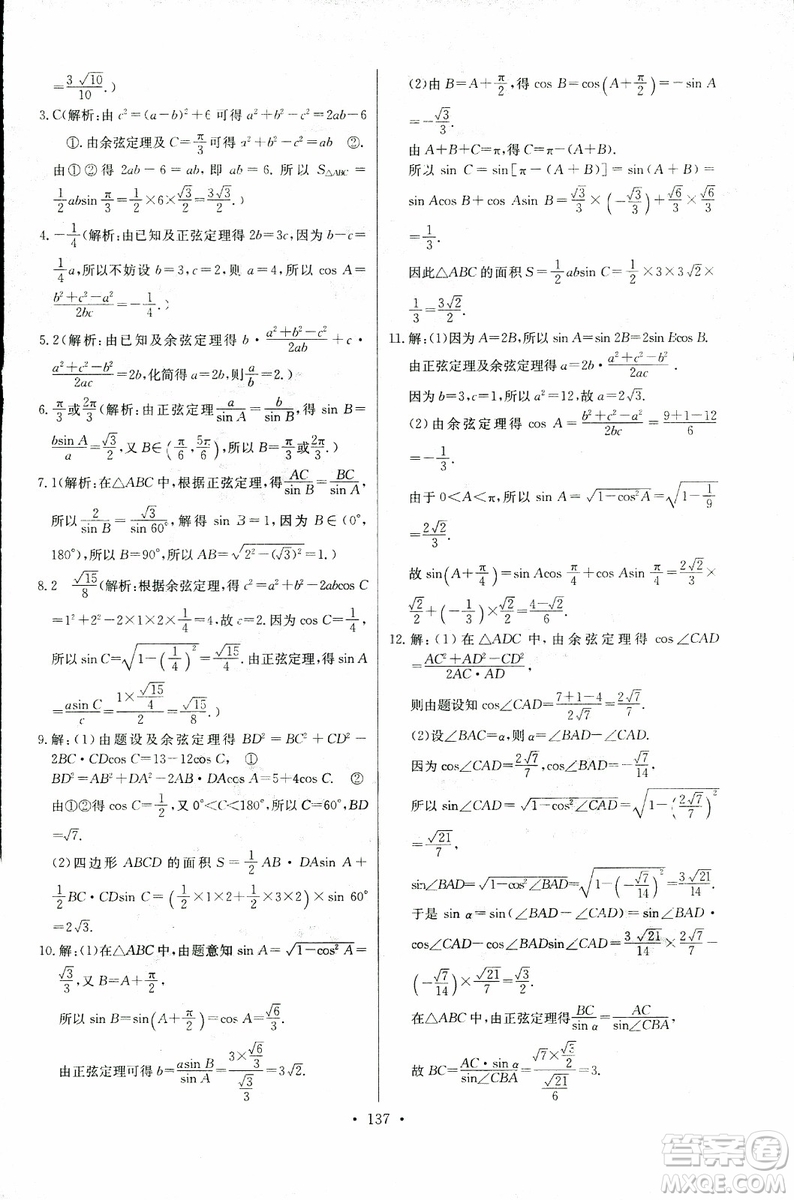 3√10/10.)
3. C(解析:由 c²=(a-b)²+6 可得 a²+b²-c²=2ab-6
①. 由余弦定理及 C=π/3 可得 a²+b²-c²=ab ②.
由①②得 2ab-6=ab,即 ab=6. 所以 S△ABC=
1/2 absin π/3=1/2×6×√3/2=3√3/2.)
4. -1/4(解析:由已知及正弦定理得 2b=3c,因为 b-c=
1/4 a,所以不妨设 b=3,c=2,所以 a=4,所以 cos A=
(b²+c²-a²)/2bc=-1/4.)
5. 2(解析:由已知及余弦定理得 b·(a²+b²-c²)/2ab+c·
(a²+c²-b²)/2ac=2b,化简得 a=2b,则 a/b=2.)
6. π/3或2π/3(解析:由正弦定理 a/sin A=b/sin B,得 sin B=
bsin A/a=√3/2,又 B∈(π/6,5π/6),所以 B=π/3或2π/3.)
7. 1(解析:在△ABC 中,根据正弦定理,得 AC/sin B=BC/sin A,
所以 2/sin B=√3/sin 60°,解得 sin B=1,因为 B∈(0°,
180°),所以 B=90°,所以 AB=√(2²-(√3)²)=1.)
8. 2 √15/8(解析:根据余弦定理,得 c²=a²+b²-2abcos C
=1²+2²-2×1×2×1/4=4,故 c=2. 因为 cos C=1/4,
所以 sin C=√(1-(1/4)²)=√15/4. 由正弦定理,得 sin A
=asin C/c=(1×√15/4)/2=√15/8.)
9. 解:(1)由题设及余弦定理得 BD²=BC²+CD²-
2BC·CDcos C=13-12cos C, ①
BD²=AB²+DA²-2AB·DAcos A=5+4cos C. ②
由①②得 cos C=1/2,又 0°<C<180°,所以 C=60°,BD
=√7.
(2)四边形 ABCD 的面积 S=1/2 AB·DAsin A+
1/2 BC·CDsin C=(1/2×1×2+1/2×3×2) sin 60°
=2√3.
10. 解:(1)在△ABC 中,由题意知 sin A=√(1-cos² A)=
√3/3,又 B=A+π/2,
所以 sin B=sin(A+π/2)=cos A=√6/3.
由正弦定理可得 b=asin B/sin A=(3×√6/3)/(√3/3)=3√2.
(2)由 B=A+π/2,得 cos B=cos(A+π/2)=-sin A
=-√3/3.
由 A+B+C=π,得 C=π-(A+B).
所以 sin C=sin[π-(A+B)]=sin(A+B)=
sin Acos B+cos Asin B=√3/3×(-√3/3)+√6/3×√6/3=
1/3.
因此△ABC 的面积 S=1/2 absin C=1/2×3×3√2×
1/3=3√2/2.
11. 解:(1)因为 A=2B,所以 sin A=sin 2B=2sin Bcos B.
由正弦定理及余弦定理得 a=2b·(a²+c²-b²)/2ac.
因为 b=3,c=1,所以 a²=12,故 a=2√3.
(2)由余弦定理得 cos A=(b²+c²-a²)/2bc=(9+1-12)/6
=-1/3.
由于 0<A<π,所以 sin A=√(1-cos²A)=√(1-1/9)=
2√2/3.
故 sin(A+π/4)=sin Acos π/4+cos Asin π/4=2√2/3×
√2/2+(-1/3)×√2/2=(4-√2)/6.
12. 解:(1)在△ADC 中,由余弦定理得 cos∠CAD
=(AC²+AD²-CD²)/(2AC·AD).
则由题设知 cos∠CAD=(7+1-4)/2√7=2√7/7.
(2)设∠BAC=α,则 α=∠BAD-∠CAD.
因为 cos∠CAD=2√7/7,cos∠BAD=-√7/14,
所以 sin∠CAD=√(1-cos²∠CAD)=√(1-(2√7/7)²)=
√21/7,
sin∠BAD=√(1-cos²∠BAD)=√(1-(-√7/14)²)=3√21/14.
于是 sin α=sin(∠BAD-∠CAD)=sin∠BAD
·cos∠CAD-cos∠BADsin∠CAD=3√21/14×2√7/7-
(-√7/14)×√21/7=√3/2.
在△ABC 中,由正弦定理得 BC/sin α=AC/sin∠CBA,
故 BC=AC·sin α/sin∠CBA=(√7×√3/2)/(√21/6)=3.
· 137 ·
答案圈
MXQE.COM